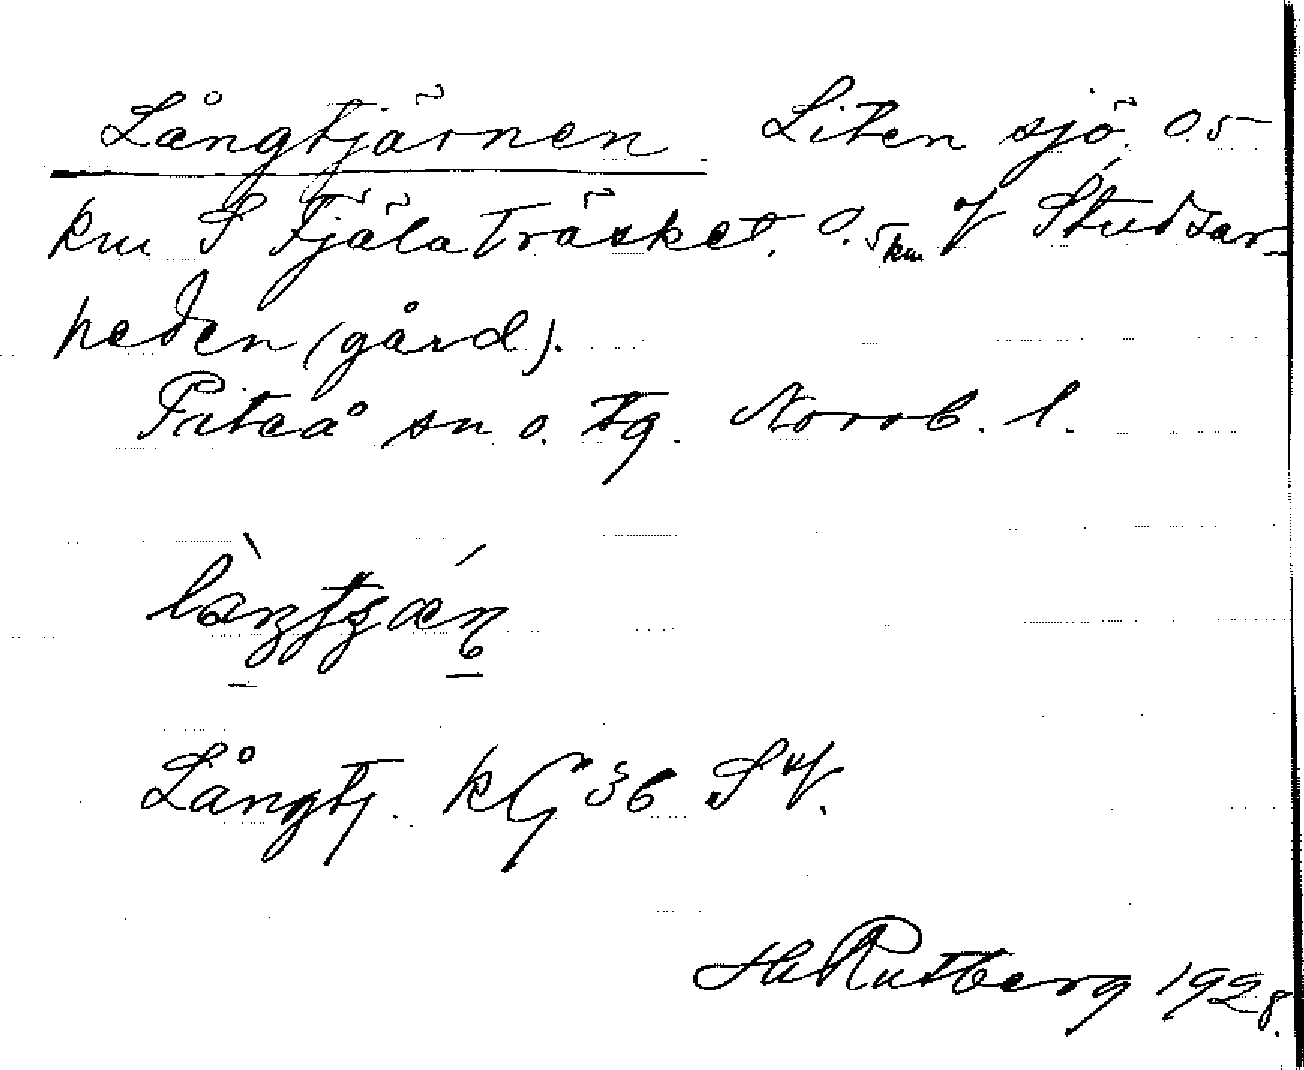 Långtjärnen Liten sjö. 0.5
km S Fjälaträsket. 0.5 km V Studsar-
heden (gård).
Piteå sn o. tg. Norrb. l.
Långtj. kG 36 SV.
H Rutberg 1928.